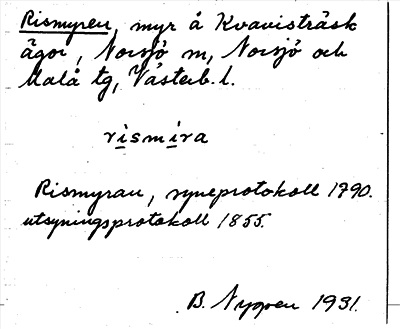 Rismyren, myr å Kvavisträsk
ägor, Norsjö sn, Norsjö och
Malå tg, Västerb. l.
rismira
Rismyran, syneprotokoll 1790.
utsyningsprotokoll 1855.
B. Nygren 1931.